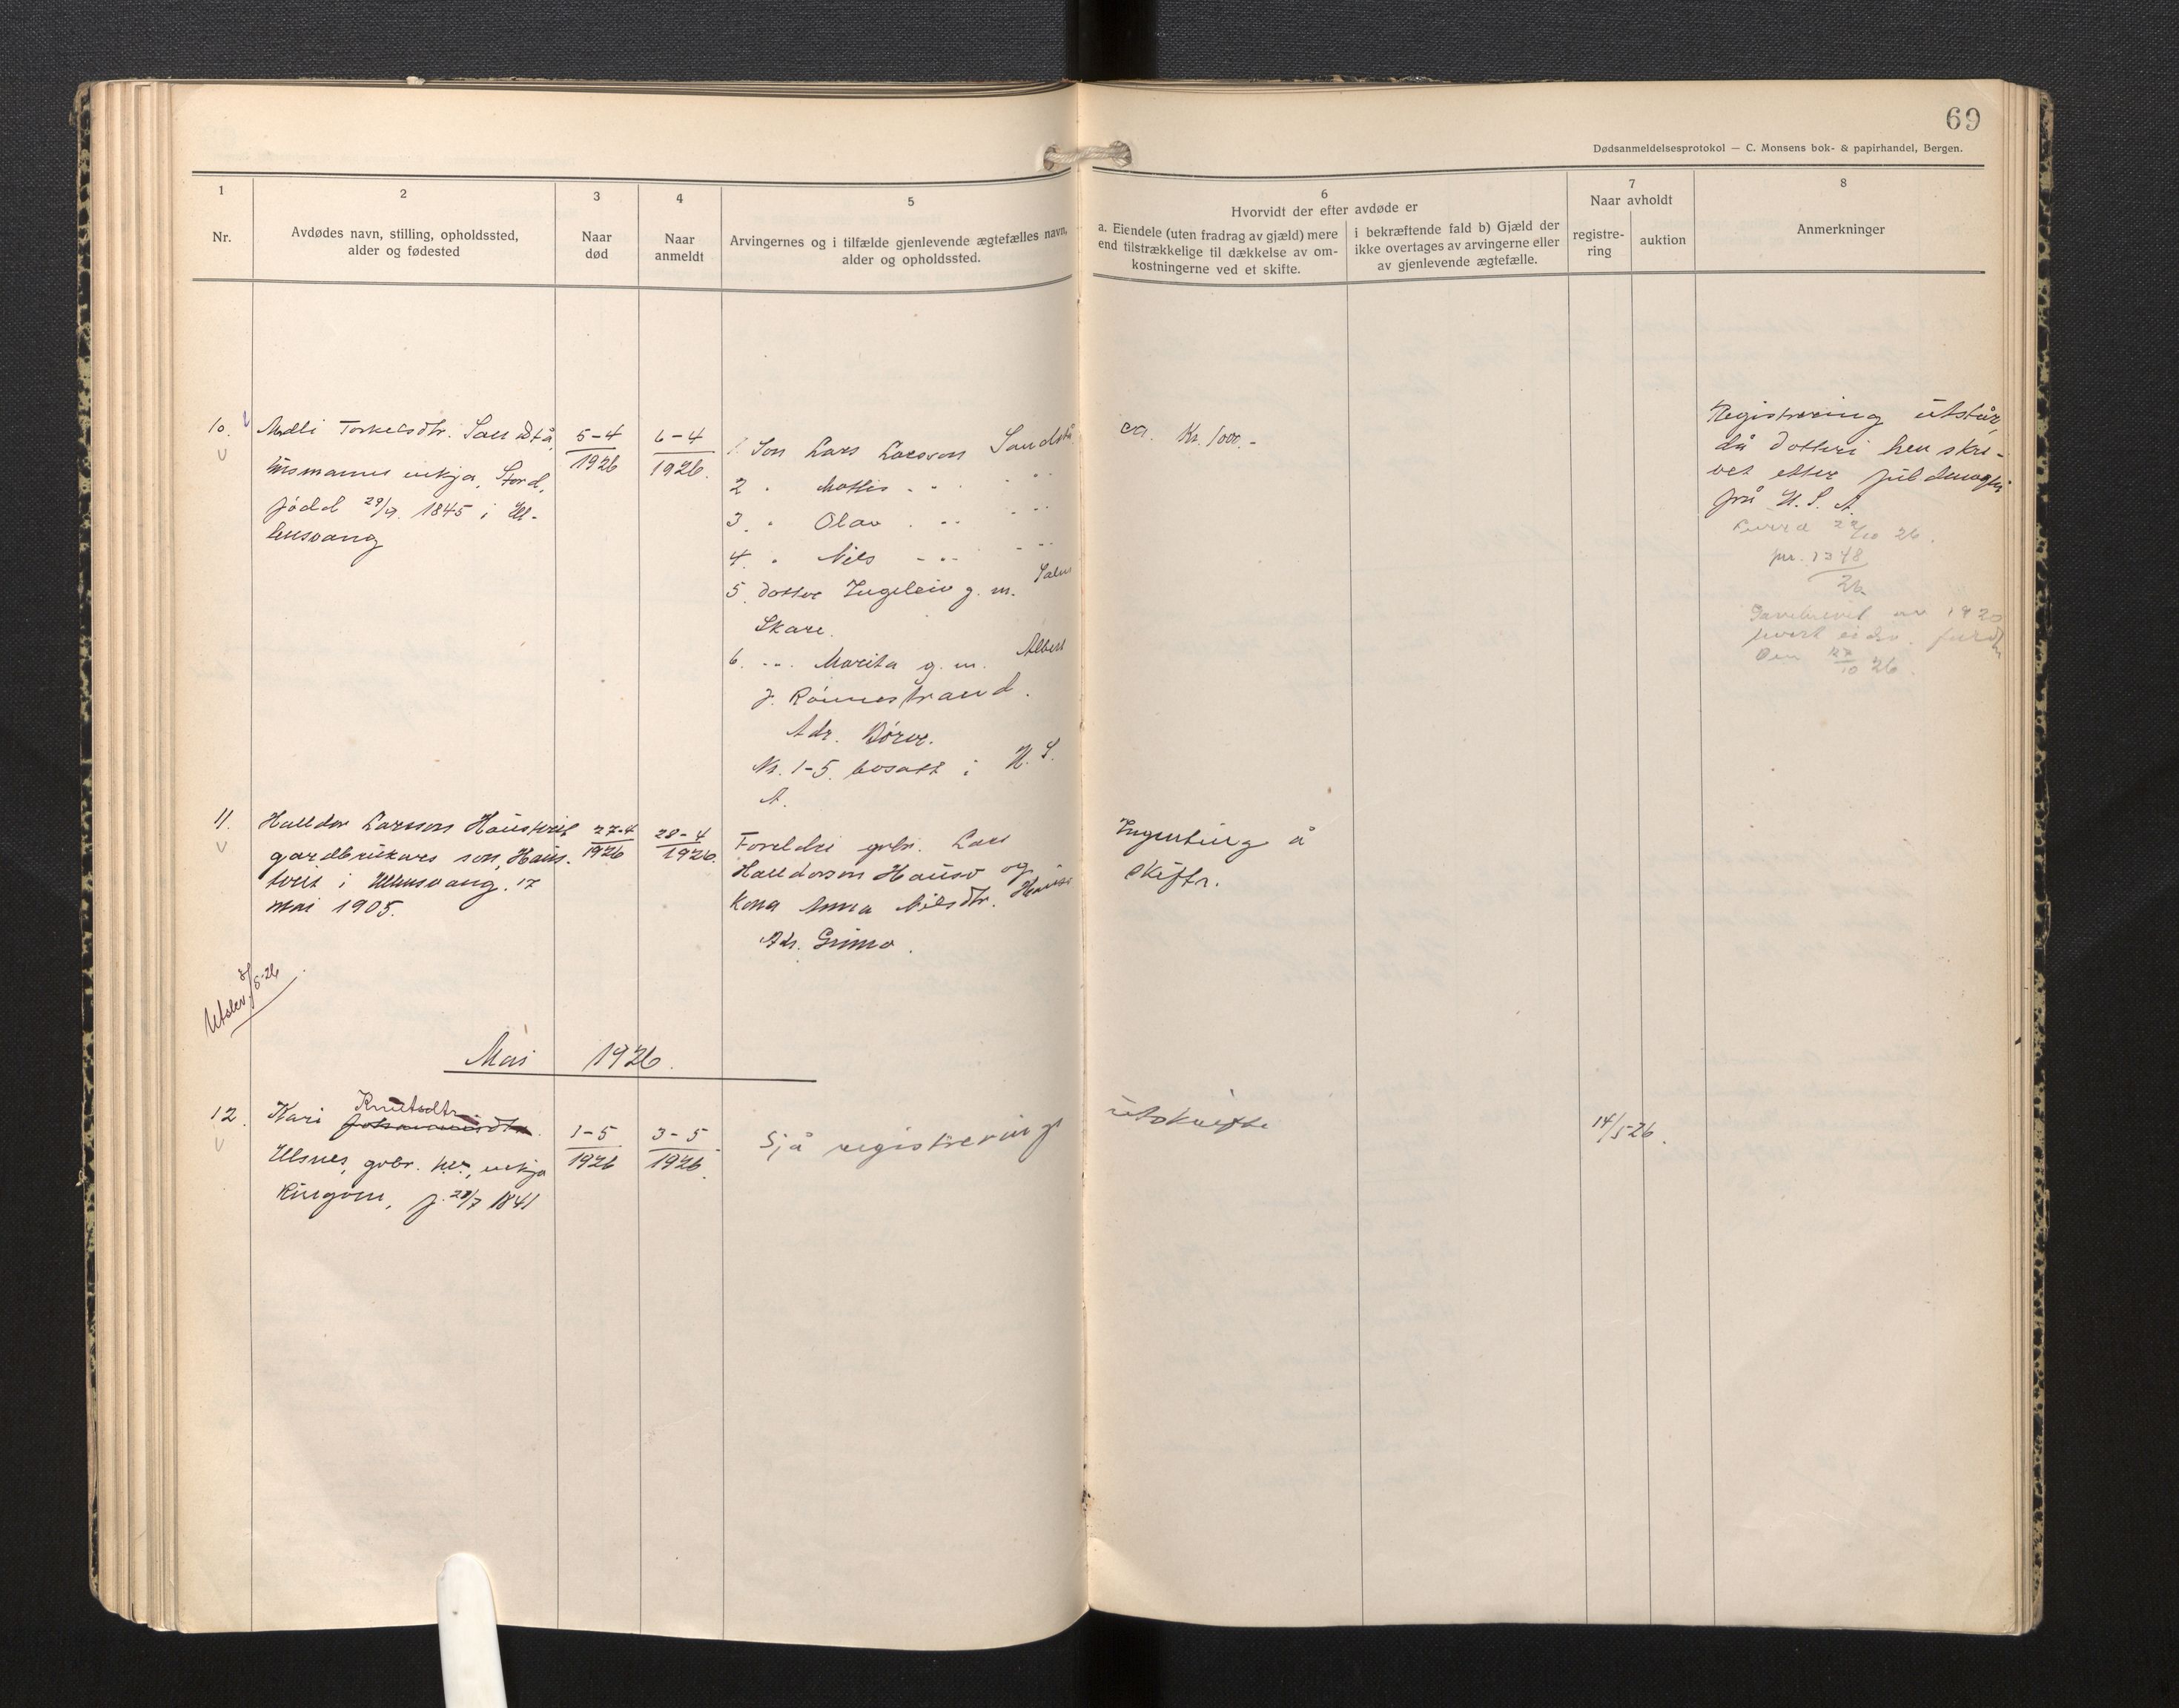 69
Dødsanmeldelsesprotokol — C. Monsens bok- & papirhandel, Bergen.
1
Nr.
2
Avdødes navn, stilling, opholdssted,
alder og fødested
3
Naar
død
4
Naar
anmeldt
5
Arvingernes og i tilfælde gjenlevende ægtefælles navn,
alder og opholdssted.
6
Hvorvidt der efter avdøde er
a. Eiendele (uten fradrag av gjæld) mere
end tilstrækkelige til dækkelse av om-
kostningerne ved et skifte.
i bekræftende fald b) Gjæld der
ikke overtages av arvingerne eller
av gjenlevende ægtefælle.
7
Naar avholdt
registre-
ring
auktion
8
Anmerkninger
10.
Torkelsdtr. Sandstå,
husmanns enkja, Stord,
född 29/9. 1845 i Ul-
lensvang
5-4
1926
6-4
1926.
1. Son Lars Larsson Sandstå
2 " Mattis - " - "
3. " Olav . - " - "
4. " Nils - " - "
5. dotter Ingeleiv g. m.
Skare.
6. - " - Marita g. m. Albert
J. Rönnestrand.
Adr. Börve.
Nr. 1-5. bosatt i U. S.
A.
ca. Kr. 1000.-
Registrering utstår,
då dotteri hev skri-
vet etter
frå U. S. A.
26.
1348
26
1920
Den 27/10 26.
11.
Halldor Larsson
gardbrukars son,
i Ullensvang. 17
mai 1905.
27-4
1926
28-4
1926.
Foreldri gbr. Lars
Halldorson Hauso og
kona Anna Nilsdtr.
Adr. Grimo.
Ingenting å
skifte.
5-26
Mai 1926.
12.
Kari Knutsdtr.
Ulsnes, gbr. enkja
Ringöen, f. 28/7 1841
1-5
1926
3-5
1926.
Sjå registrering
utskrifti
14/5 26.